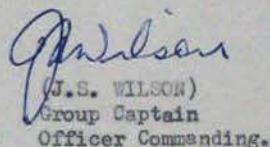 JSWilson
(J.S. WILSON)
Group Captain
Officer Commanding.